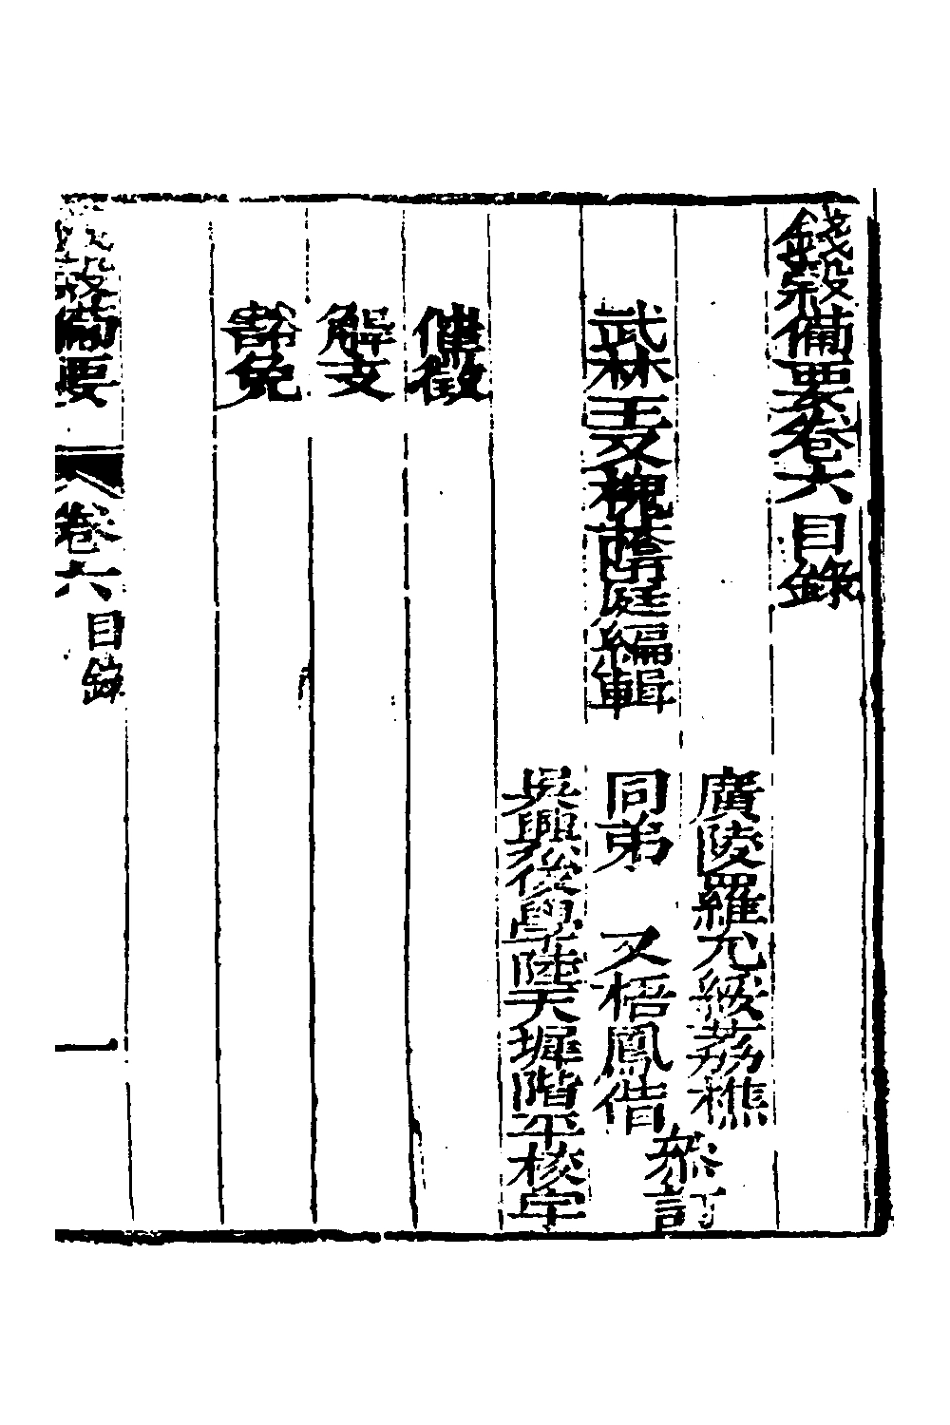 錢穀備要卷六目錄
廣陵羅允綏荔樵
武林王又槐蔭庭編輯 同弟 又梧鳳偕 參訂
吳興後學陸天墀階平校字
催徵
解支
豁免
錢穀備要 卷六 目錄 一